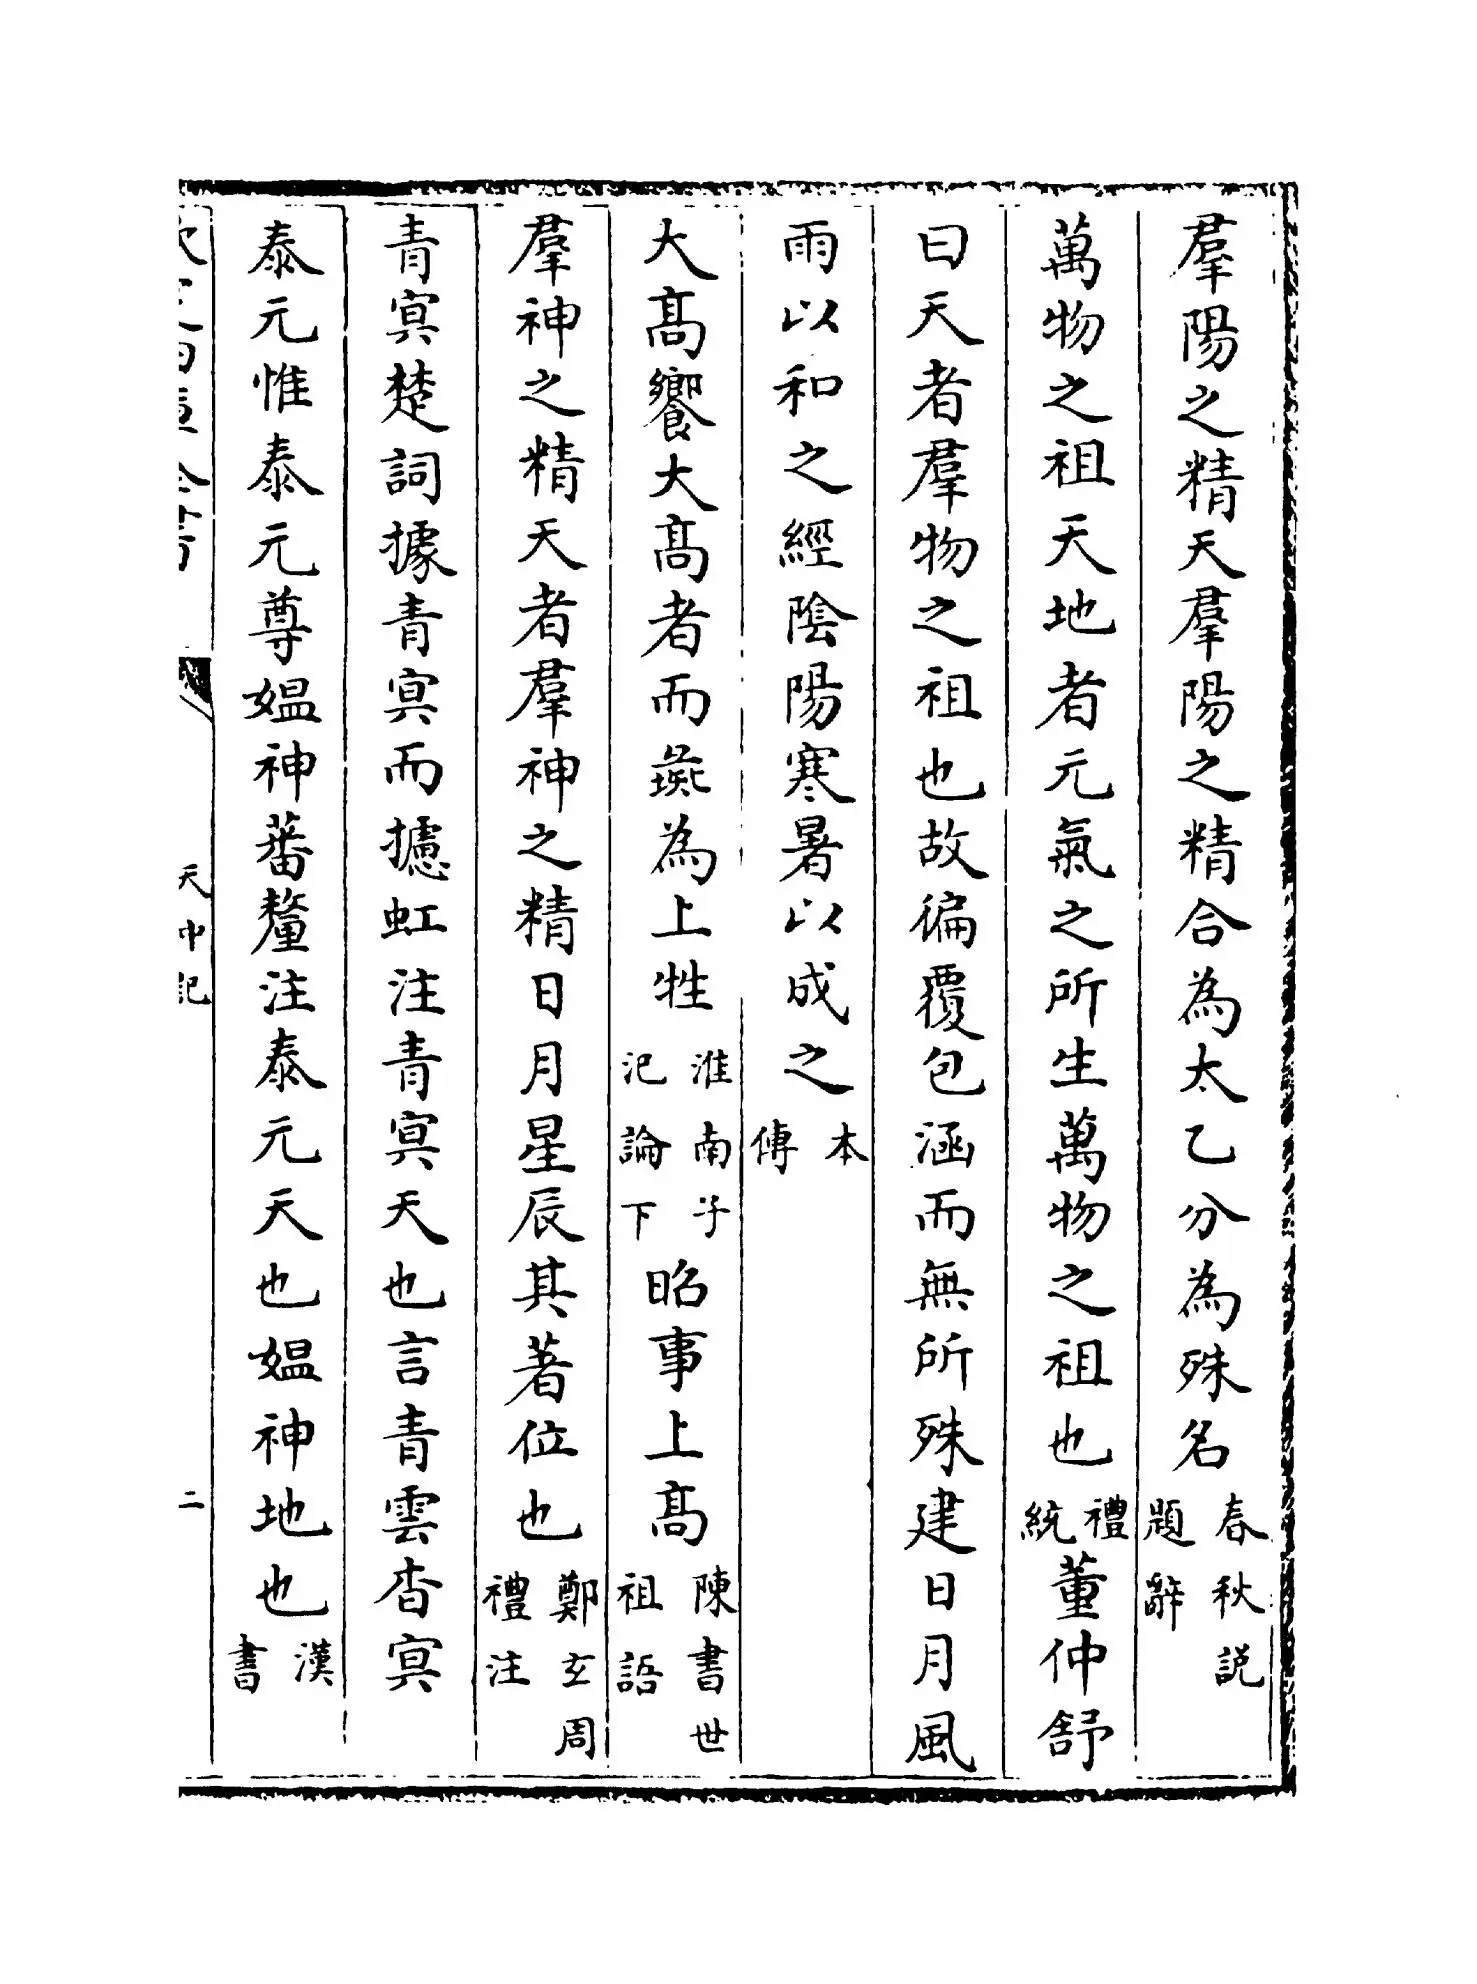 羣陽之精天羣陽之精合為太乙分為殊名春秋説題辭
萬物之祖天地者元氣之所生萬物之祖也禮統董仲舒
曰天者羣物之祖也故徧覆包涵而無所殊建日月風
雨以和之經陰陽寒暑以成之本傳
大髙饗大髙者而彘為上牲淮南子氾論下昭事上髙陳書世祖語
羣神之精天者羣神之精日月星辰其著位也鄭玄周禮注
青冥楚詞據青冥而攄虹注青冥天也言青雲杳冥
泰元惟泰元尊媪神蕃釐注泰元天也媪神地也漢書
天中記
二